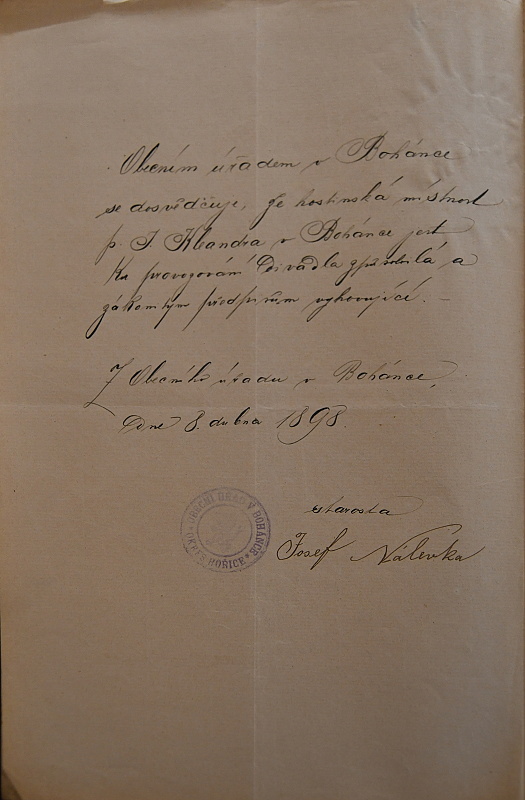 Obecním úřadem v Bohánce
se dosvědčuje, že hostinská místnost
p. J. Klandra v Bohánce jest
ku provozování Divadla způsobilá a
zákonitým předpisům vyhovující. –
Z Obecního úřadu v Bohánce,
Dne 8. dubna 1898.
starosta
Josef Nálevka
OBECNÍ ÚŘAD V BOHÁNCE
OKRES HOŘICE